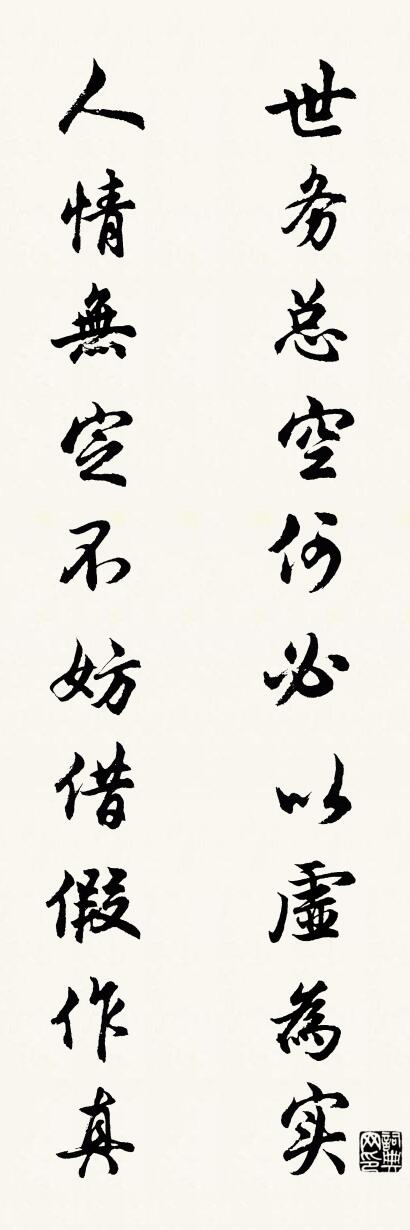 世务总空何必以虚為实
人情無定不妨借假作真
詞典網印